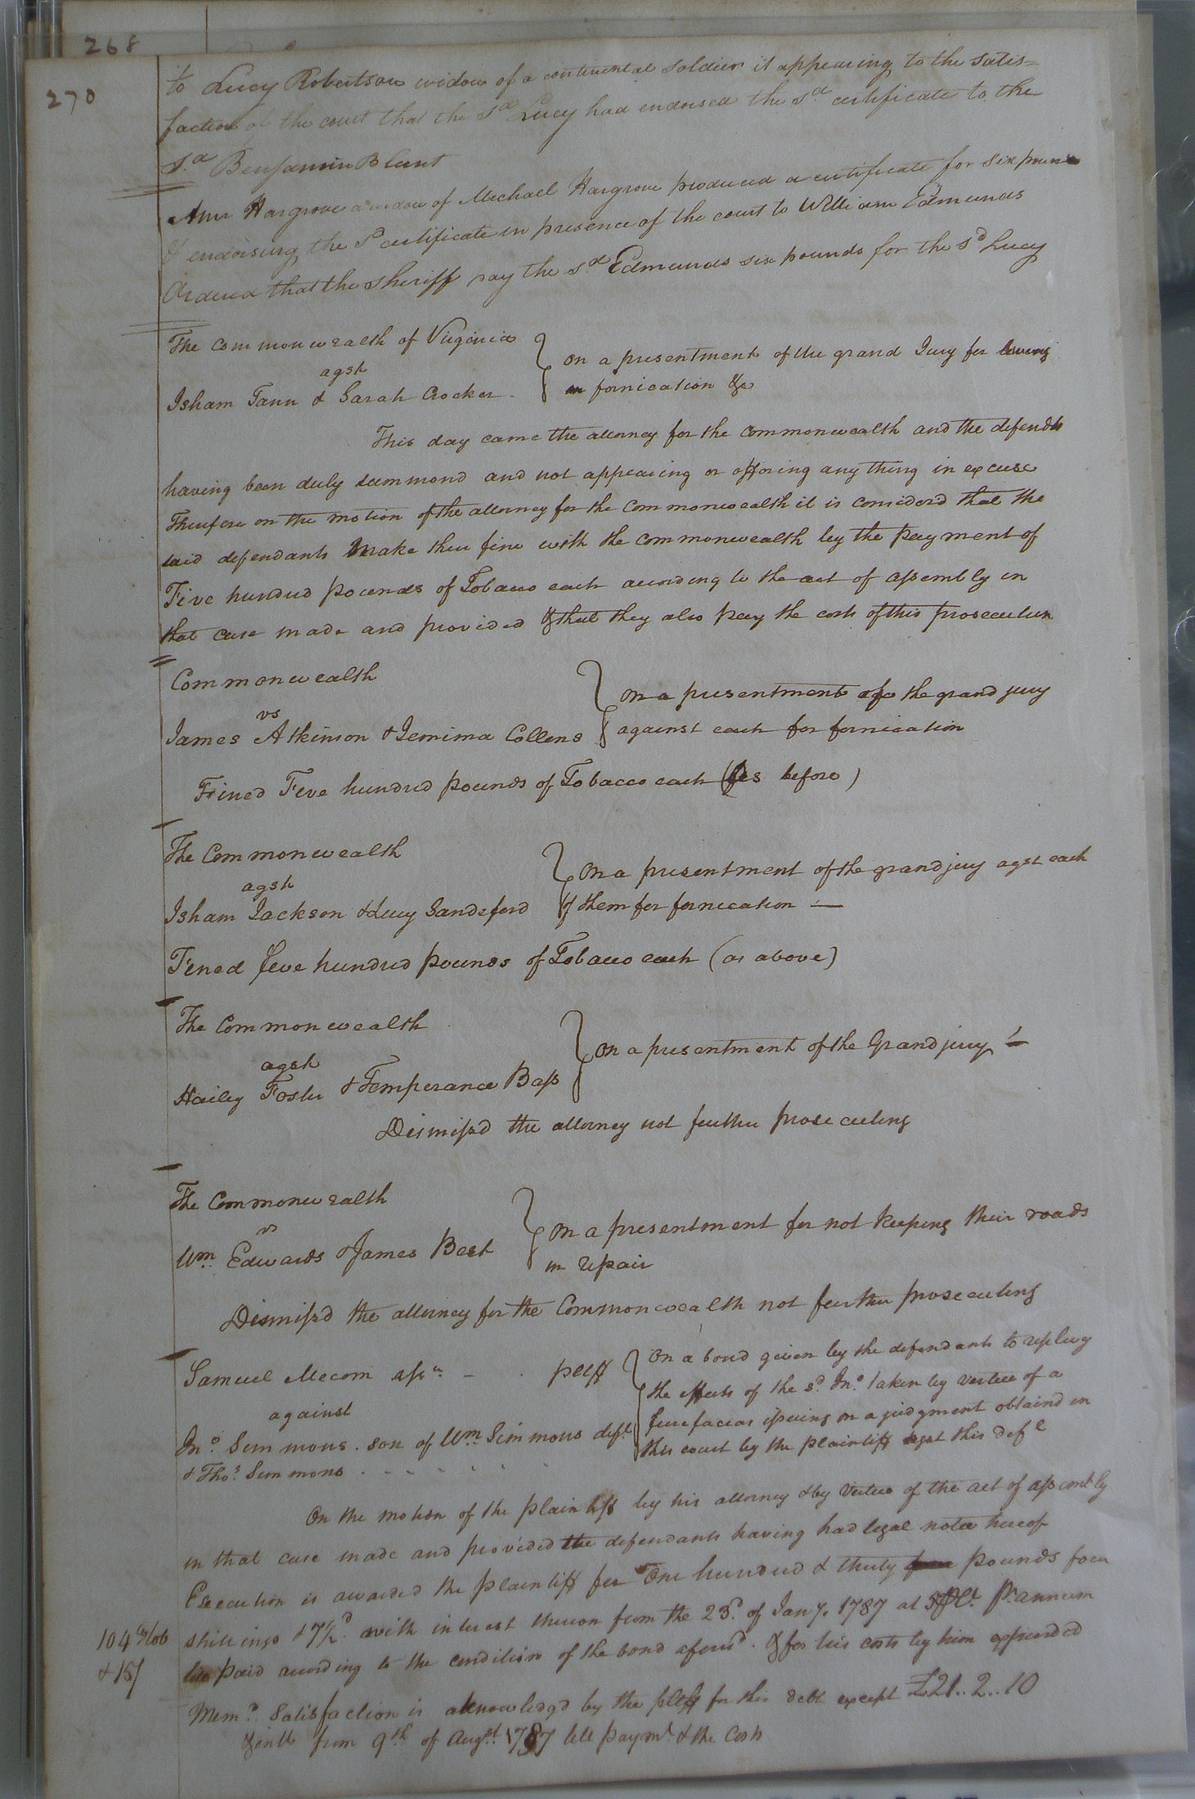 268
270
to Lucy Robertson widow of a continental soldier it appearing to the satis=
faction of the court that the sd Lucy had endorsed the sd certificate to the
sd Benjamin Blunt
Ann Hargrove widow of Michael Hargrove produced a certificate for six pounds
& endorsing the sd certificate in presence of the court to William Edmunds
Ordered that the sheriff pay the sd Edmunds six pounds for the sd Lucy
The commonwealth of Virginia
agst
Isham Tann & Sarah Crocker.
on a presentment of the grand Jury for
in fornication &c
This day came the attorney for the commonwealth and the defendts
having been duly summond and not appearing or offering any thing in excuse
Therefore on the motion of the attorney for the commonwealth it is considerd that the
said defendants make their fine with the commonwealth by the payment of
Five hundred pounds of Tobacco each according to the act of assembly in
that case made and provided & that they also pay the costs of this prosecution
Commonwealth
vs
James Atkinson & Jemima Collens
on a presentment of the grand jury
against each for fornication
Fined Five hundred pounds of Tobacco each (as before)
The Commonwealth
agst
Isham Jackson & Lucy Sandeford
on a presentment of the grand jury agst each
of them for fornication —
Fined five hundred pounds of Tobacco each (as above)
The Commonwealth
agst
Hailey Foster & Temperance Bass
on a presentment of the Grand jury —
Dismiss'd the attorney not further prosecuting
The Commonwealth
vs
Wm. Edwards & James Best
on a presentment for not keeping their roads
in repair
Dismiss'd the attorney for the Commonwealth not further prosecuting
Samuel Mecom - . pltff
against
Jno. Simmons. son of Wm. Simmons deft
& Thos. Simmons . - - - . .
On a bond given by the defendants to replevy
the effects of the sd. Jno. taken by vertue of a
fierefacias issuing on a judgment obtaind in
this court by the plaintiff agst this deft
On the motion of the plaintiff by his attorney & by vertue of the act of assembly
in that case made and provided the defendants having had legal notice hereof
Execution is awarded the plaintiff for One hundred & thirty pounds four
shillings & 7½d. with interest thereon from the 23d. of Jany. 1787 at 5 pr Ct. pr annum
till paid according to the condition of the bond aforesd. & for his costs by him expended
104 lb tob
& 15/
Memo. Satisfaction is aknowledgd by the pltff for this debt except £21..2..10
& intt from 9th of Augst. 1787 till paymt & the Costs